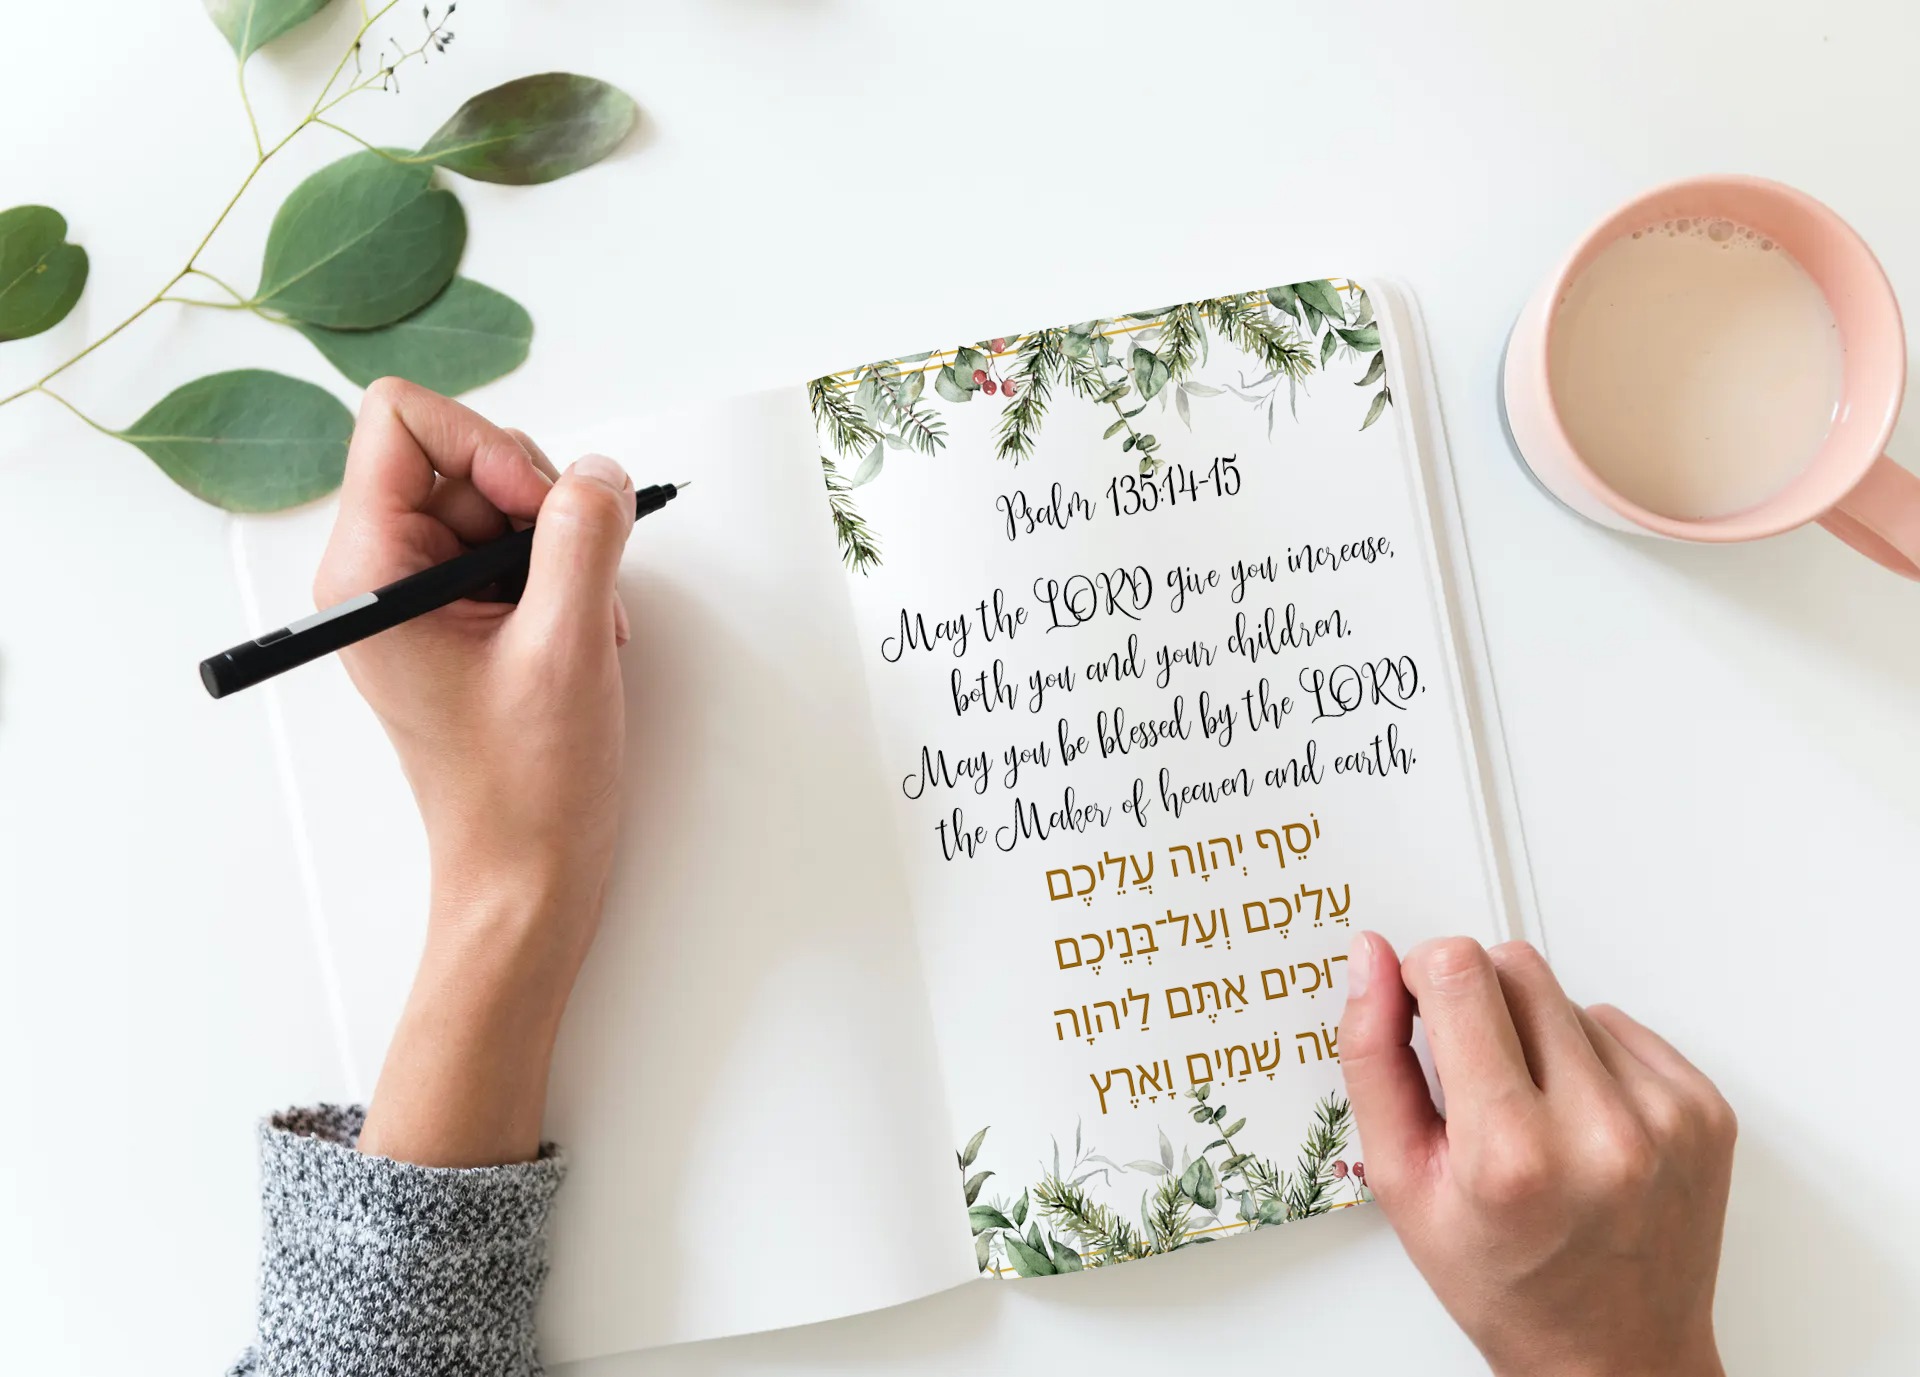 Psalm 135:14-15
May the LORD give you increase,
both you and your children.
May you be blessed by the LORD,
the Maker of heaven and earth.
יֹסֵף יְהוָה עֲלֵיכֶם
עֲלֵיכֶם וְעַל־בְּנֵיכֶם
אַתֶּם לַיהוָה
שָׁמַיִם וָאָרֶץ